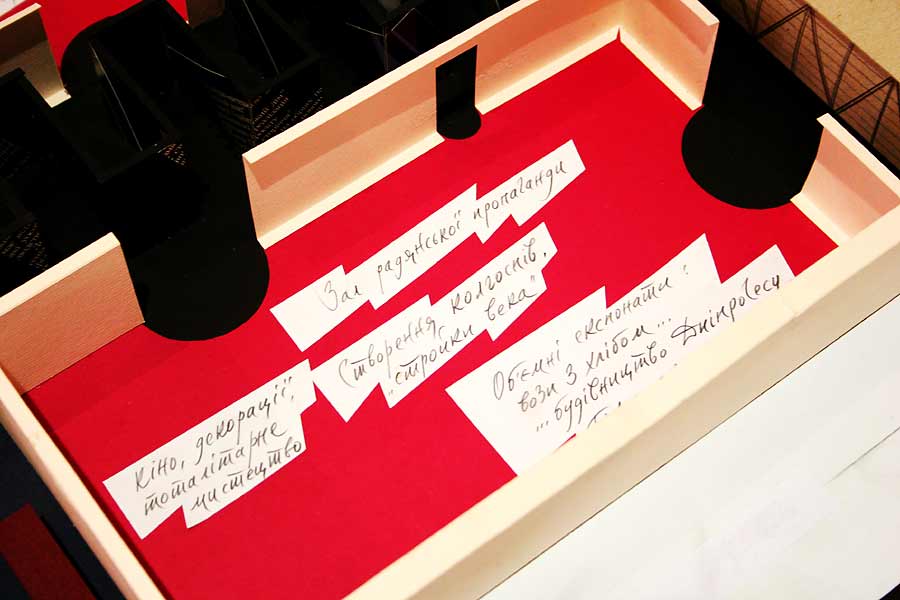 Зал радянської пропаганди
Створення колгоспів,
"стройки века"
Об'ємні експонати:
вози з хлібом...
... будівництво Дніпрогесу
кіно, декорації,
тоталітарне
мистецтво